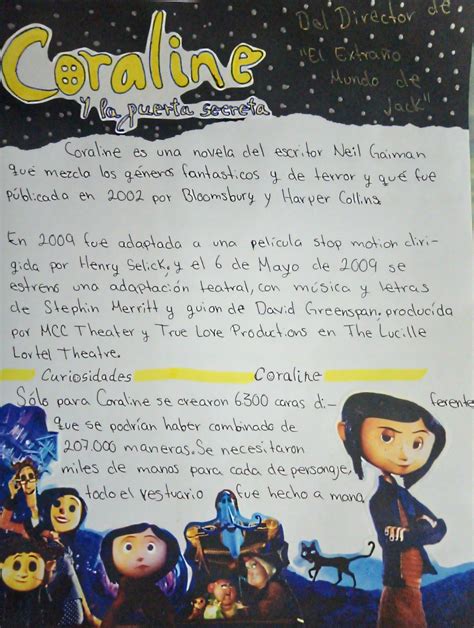 Coraline
Y la puerta secreta
Del Director de
"El Extraño
Mundo de
Jack"
Coraline es una novela del escritor Neil Gaiman
qué mezcla los géneros fantasticos y de terror y qué fue
públicada en 2002 por Bloomsbury y Harper Collins
En 2009 fue adaptada a una película stop motion diri-
gida por Henry Selick, y el 6 de Mayo de 2009 se
estreno una adaptación teatral, con música y letras
de Stephin Merritt y guion de David Greenspan, producida
por MCC Theater y True Love Productions en The Lucille
Lortel Theatre.
Curiosidades Coraline
Sólo para Coraline se crearon 6300 caras di- ferente
que se podrían haber combinado de
207.000 maneras. Se necesitaron
miles de manos para cada de personaje,
todo el vestuario fue hecho a mano